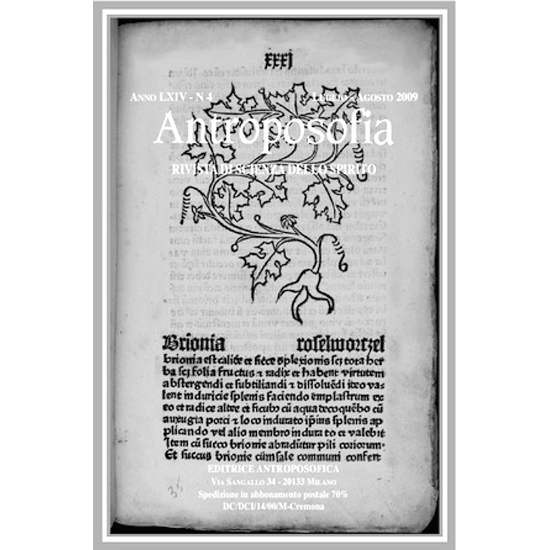 xxxj
ANNO LXIV - N 4 LUGLIO - AGOSTO 2009
Antroposofia
RIVISTA DI SCIENZA DELLO SPIRITO
Brionia roselwortzel
brionia est calide et sicce
ba scz folia fructus et radix et habent virtutem
abstergendi et subtiliandi et
lent in duricie splenis faciendo emplastrum ex
to et radice altee et ficubus cum aqua
auxugia porci et loco indurato ipsius splenis ap
plicando vel alio membro indurato et valebit
Item cum succo brionie pili coriorum
Et succus brionie cum sale communi confert
EDITRICE ANTROPOSOFICA
VIA SANGALLO 34 - 20133 MILANO
Spedizione in abbonamento postale 70%
DC/DCI/14/00/M-Cremona